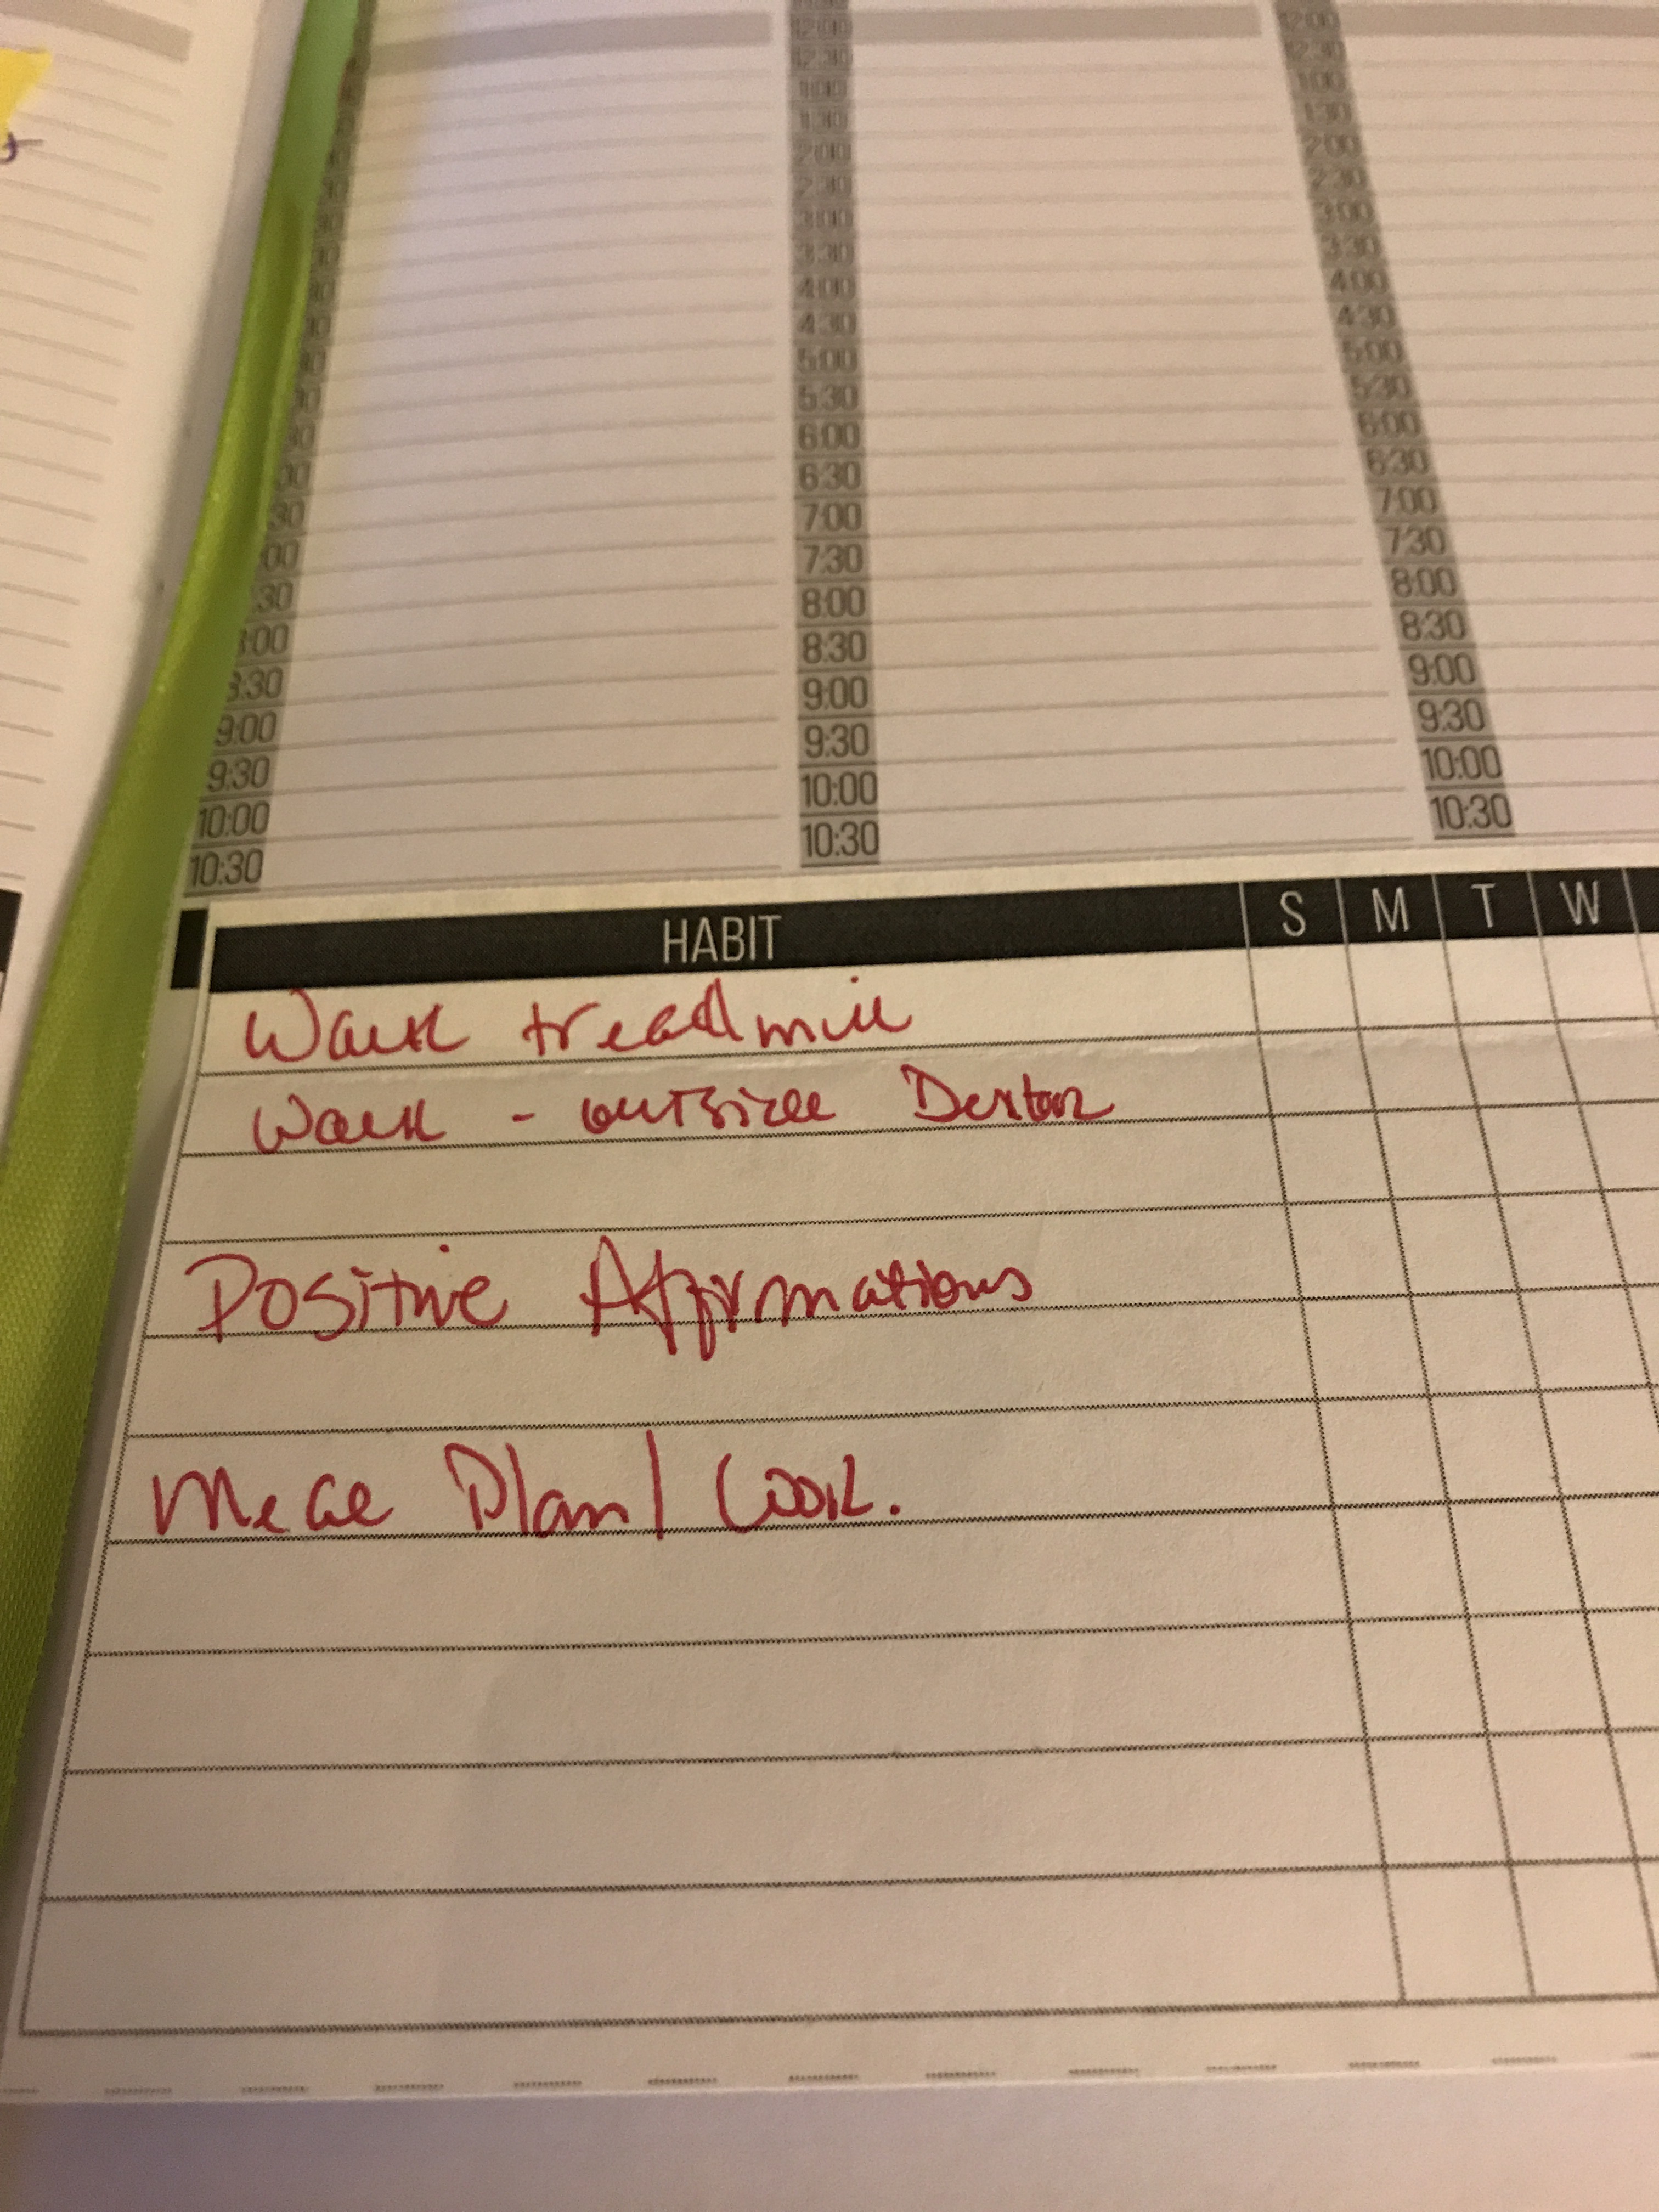 12:00 12:00
12:30 12:30
1:00 1:00
1:30 1:30
2:00 2:00
2:30 2:30
3:00 3:00
3:30 3:30
4:00 4:00
4:30 4:30
5:00 5:00
5:30 5:30
6:00 6:00
6:30 6:30
7:00 7:00
7:30 7:30
8:00 8:00
8:30 8:30
9:00 9:00 9:00
9:30 9:30 9:30
10:00 10:00 10:00
10:30 10:30 10:30
HABIT S M T W
Walk treadmill
Walk - outside
Positive Affirmations
Meal Plan/